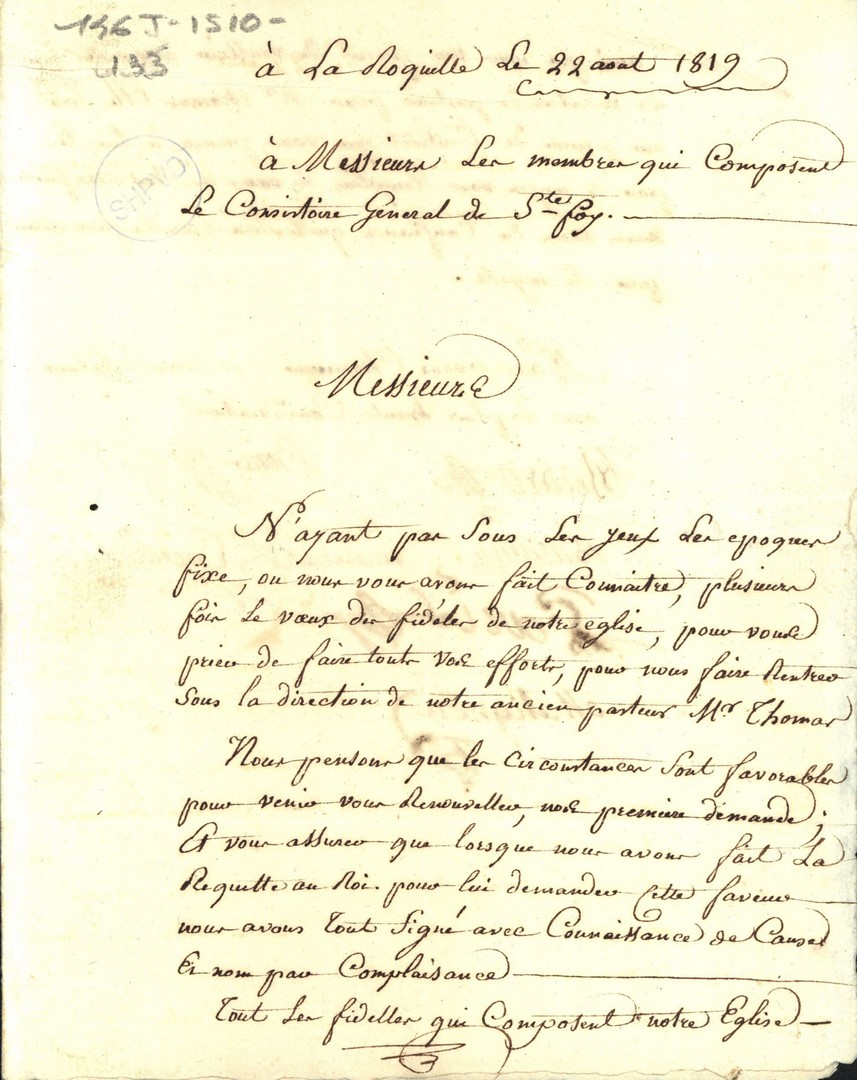 146 J-1510-
133
à La Roquille Le 22 aout 1819
SHPVD
à Messieurs Les membres qui Composent
Le Consistoire Général de Ste foy.
Messieurs
N'ayant pas sous les yeux Les epoques
fixe, ou nous vous avons fait Connaitre, plusieurs
fois Le vœux des fidéles de notre eglise, pour vous
prier de faire touts vos efforts, pour nous faire Rentrer
sous la direction de notre ancien pasteur Mr Thomas
Nous pensons que les Circonstances sont favorables
pour venir vous Renouveller, nos premiere demande;
Et vous assurer que lorsque nous avons fait La
Requitte au Roi. pour lui demander Cette faveur
nous avons Tout signé avec Connaissance de Cause
Et nom par Complaisance
Tout Les fidelles qui Composent notre Eglise